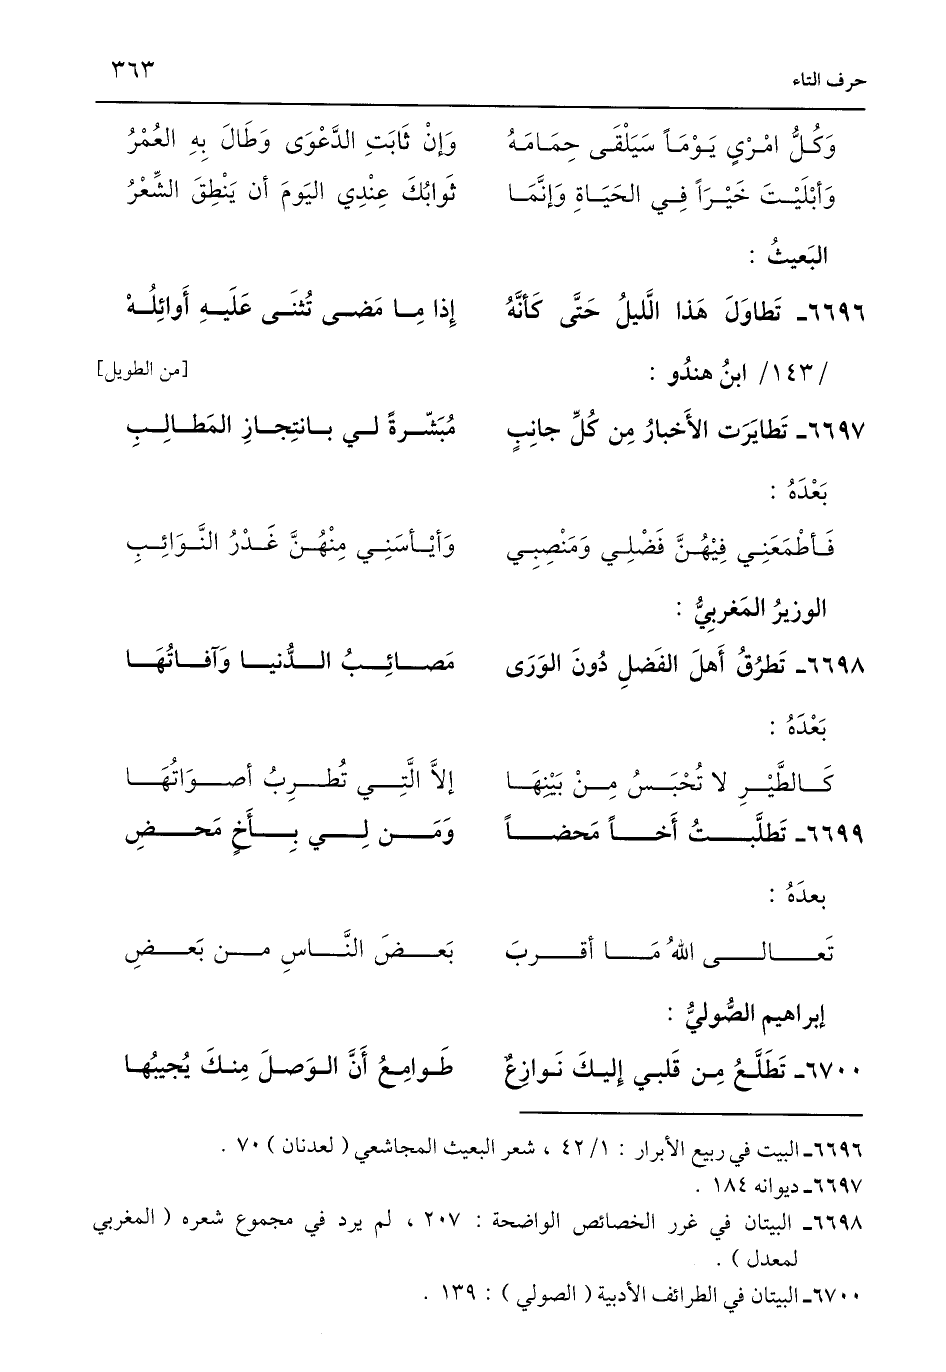 حرف التاء ٣٦٣
وَكُلُّ امْرْيٍ يَوْمَاً سَيَلْقَى حِمَامَهُ وَإنْ ثَابَتِ الدَّعْوَى وَطَالَ بِهِ العُمْرُ
وَأبْلَيْتَ خَيْرَاً فِي الحَيَاةِ وَإنَّمَا ثَوابُكَ عِنْدِي اليَومَ أن يَنْطِقَ الشِّعْرُ
البَعيثُ :
٦٦٩٦ـ تَطاوَلَ هَذا الَّليلُ حَتَّى كَأنَّهُ إذا مِا مَضى تُثنَى عَلَيهِ أوائِلُهْ
/١٤٣/ ابنُ هندُو : [من الطويل]
٦٦٩٧ـ تَطايَرَت الأخبارُ مِن كُلِّ جانِبٍ مُبَشّرةً لي بانتِجازِ المَطالِبِ
بَعْدَهُ :
فَأطْمَعَنِي فِيْهُنَّ فَضْلِي وَمَنْصِبِي وَأيْأسَنِي مِنْهُنَّ غَدْرُ النَّوَائِبِ
الوزيرُ المَغرِبيُّ :
٦٦٩٨ـ تَطرُقُ أَهلَ الفَضلِ دُونَ الوَرَى مَصائِبُ الدُّنيا وَآفاتُهَا
بَعْدَهُ :
كَالطَّيْرِ لا تُحْبَسُ مِنْ بَيْنِهَا إلاَّ الَّتِي تُطرِبُ أصوَاتُهَا
٦٦٩٩ـ تَطلَّبتُ أخاً مَحضاً وَمَن لِي بِأخٍ مَحضِ
بعدَهُ :
تَعالى اللهُ مَا أقربَ بَعضَ النَّاسِ من بَعضِ
إبراهيم الصُّوليُّ :
٦٧٠٠ـ تَطَلَّعُ مِن قَلبي إليكَ نَوازِعٌ طَوامِعُ أَنَّ الوَصلَ مِنكَ يُجيبُها
٦٦٩٦ـ البيت في ربيع الأبرار : ٤٢/١ ، شعر البعيث المجاشعي ( لعدنان ) ٧٠ .
٦٦٩٧ـ ديوانه ١٨٤ .
٦٦٩٨ـ البيتان في غرر الخصائص الواضحة : ٢٠٧ ، لم يرد في مجموع شعره ( المغربي
لمعدل ) .
٦٧٠٠ـ البيتان في الطرائف الأدبية ( الصولي ) : ١٣٩ .